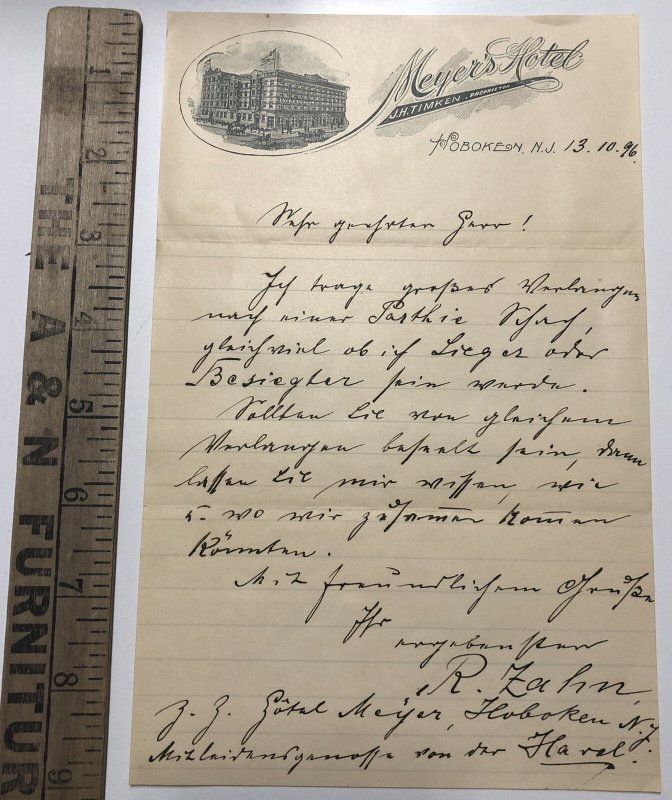 1
2
3
4
5
6
7
8
9
THE A & N FURNITUR
Meyer's Hotel
J.H. TIMKEN · PROPRIETOR
HOBOKEN, N.J. 13. 10. 96.
Sehr geehrter Herr!
Ich trage großes Verlangen
nach einer Parthie Schach,
gleichviel ob ich Sieger oder
Besiegter sein werde.
Sollten Sie von gleichem
Verlangen beseelt sein, dann
lassen Sie mir wissen, wie
u. wo wir zusammen kommen
könnten.
Mit freundlichem Gruße
Ihr
ergebenster
R. Zahn,
z. Z. Hôtel Meyer, Hoboken N.J.
Mitleidensgenosse von der Havel.